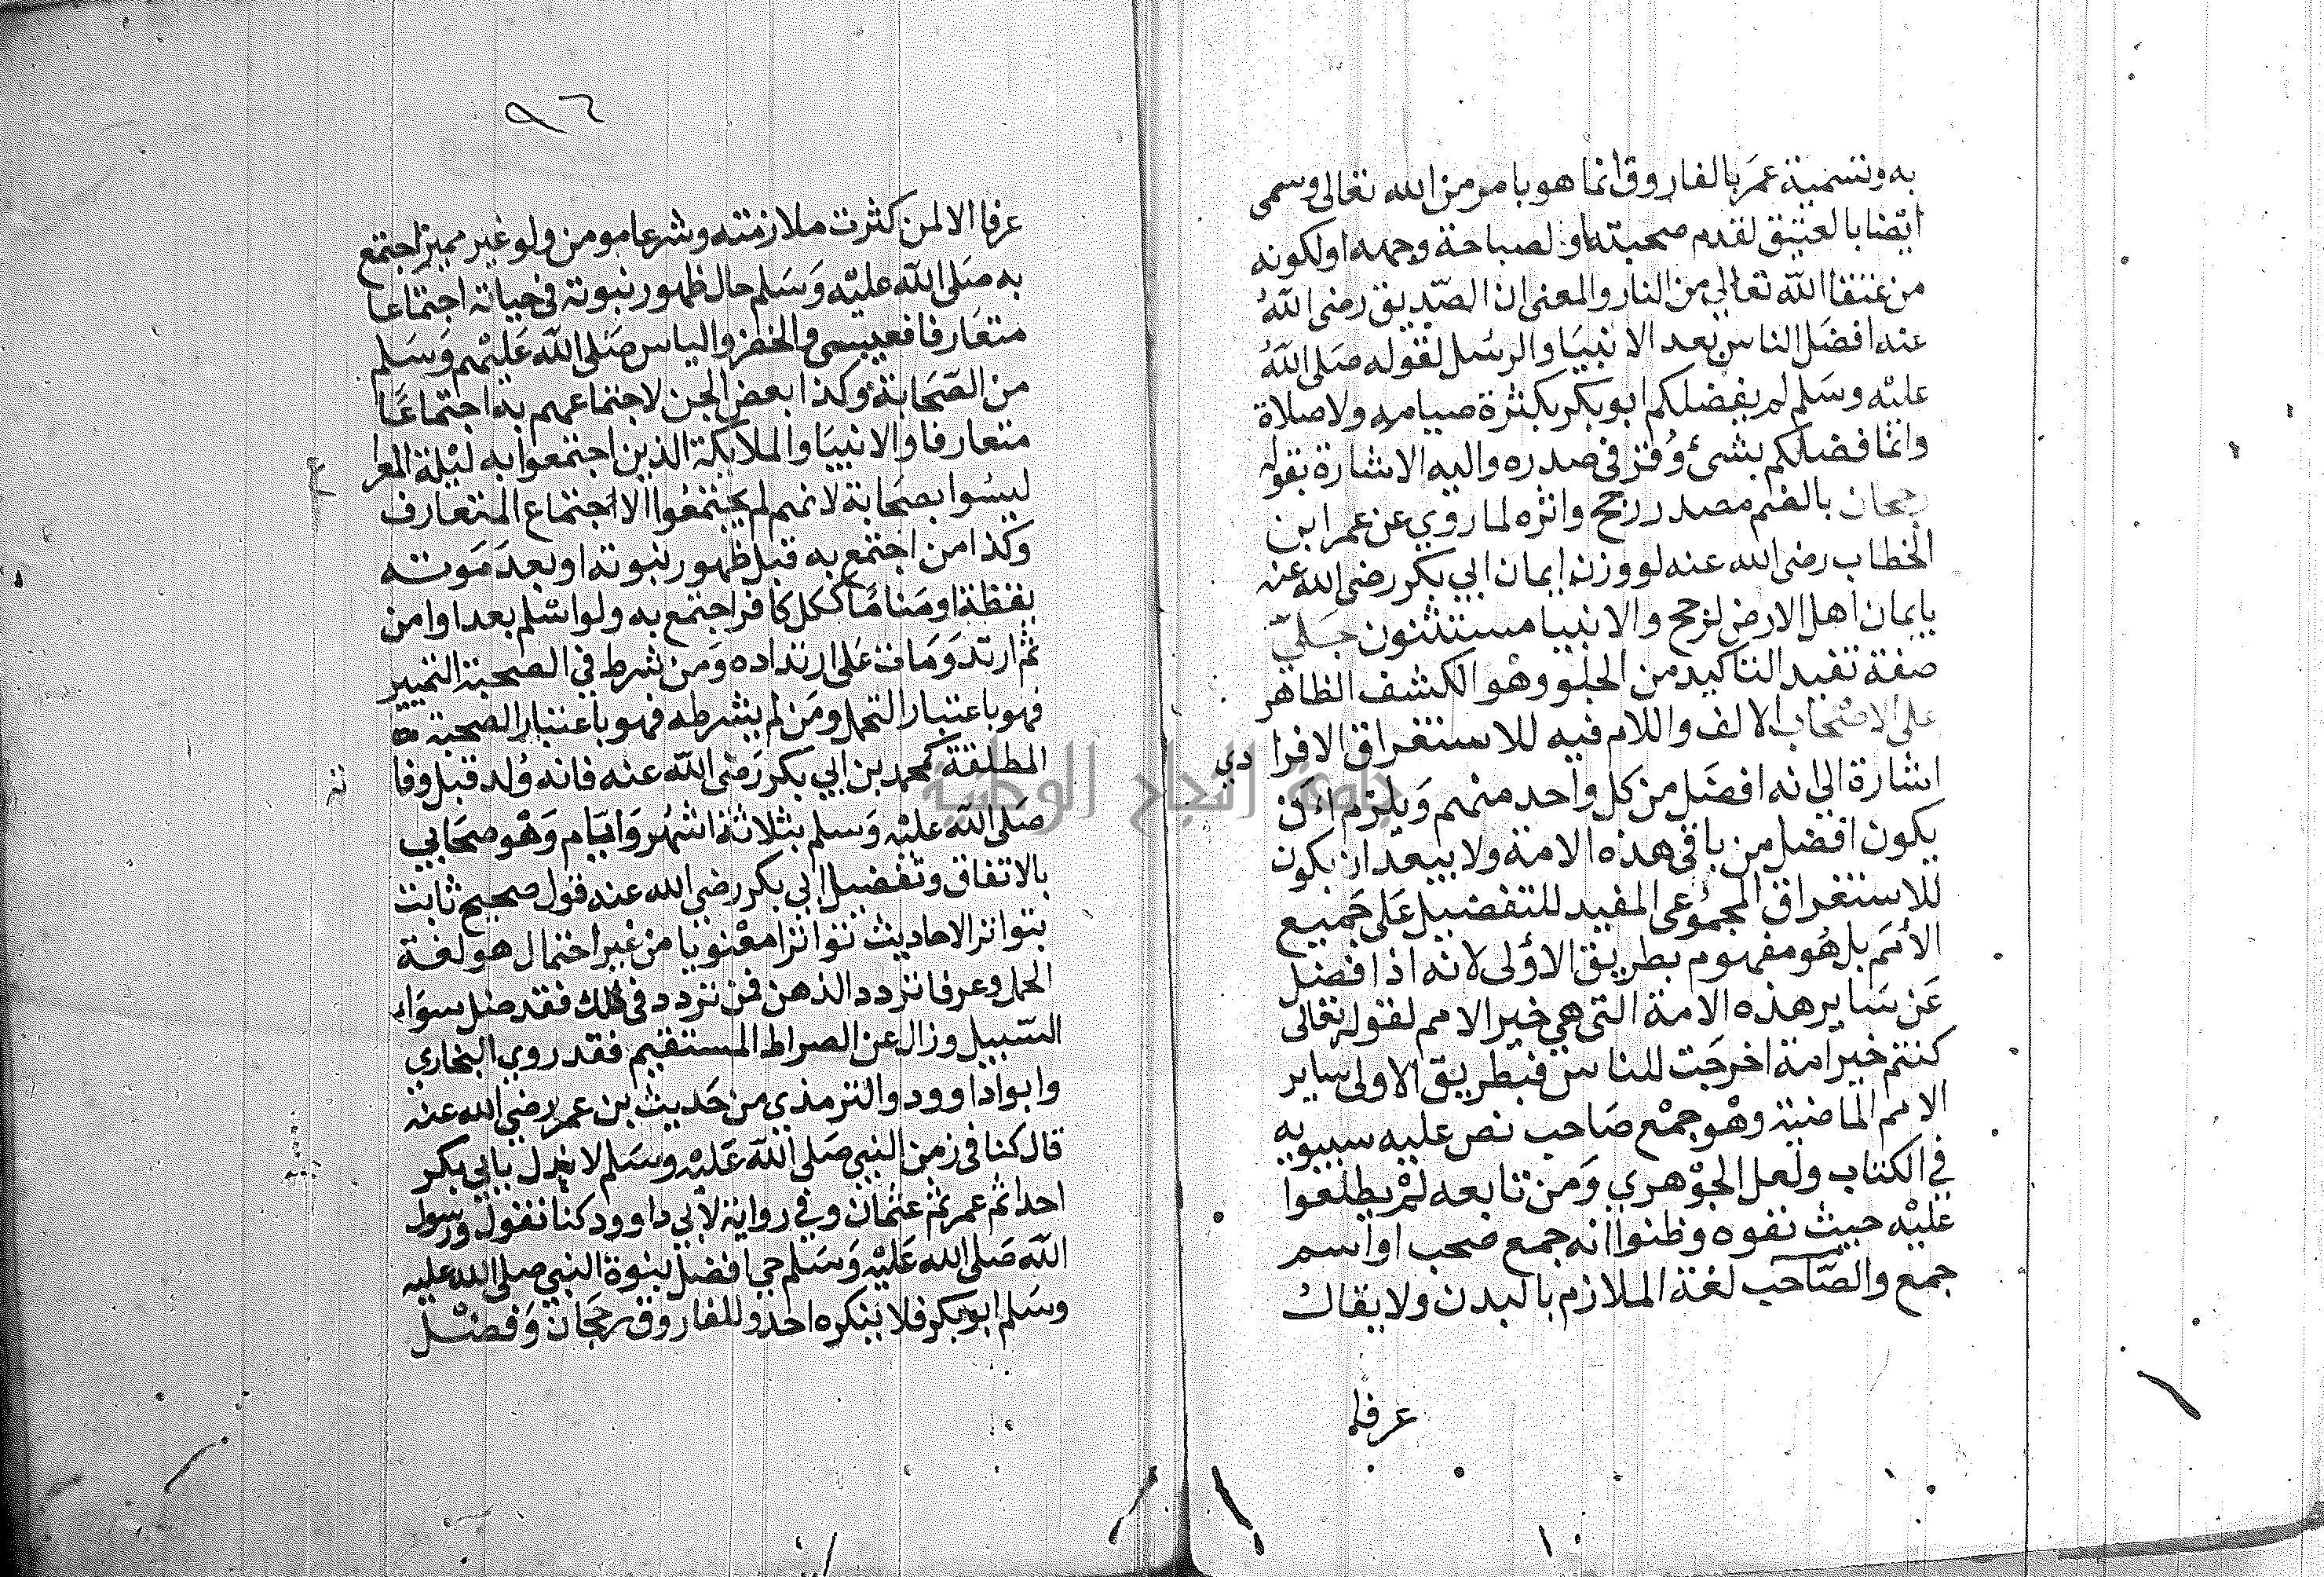 به وتسمية عمر بالفاروق انما هو بامر من الله تعالى وسمى
ايضا بالعتيق لقدم صحبته او لصباحة وجهه او لكونه
من عتقا الله تعالي من النار والمعنى ان الصديق رضى الله
عنه افضل الناس بعد الانبيا والرسل لقوله صلى الله
عليه وسلم لم يفضلكم ابو بكر بكثرة صيامه ولا صلاة
وانما فضلكم بشئ وقر في صدره واليه الاشارة بقوله
رجحان بالضم مصدر رجح واثره لما روي عن عمر ابن
الخطاب رضى الله عنه لو وزن ايمان ابي بكر رضى الله عنه
بايمان اهل الارض لرجح والانبيا مستثنون جلي
صفة تفيد التاكيد من الجلو وهو الكشف الظاهر
على الاصحاب الالف واللام فيه للاستغراق الافرادي
اشارة الي انه افضل من كل واحد منهم ويلزم ان
يكون افضل من باقي هذه الامة ولا يبعد ان يكون
للاستغراق المجموعى المفيد للتفضيل على جميع
الأمم بل هو مفهوم بطريق الأولى لانه اذا فضل
عن ساير هذه الامة التى هي خير الامم لقوله تعالى
كنتم خير امة اخرجت للناس فبطريق الاولى ساير
الامم الماضية وهو جمع صاحب نص عليه سيبويه
في الكتاب ولعل الجوهري ومن تابعه لم يطلعوا
عليه حيث نفوه وظنوا انه جمع صحب او اسم
جمع والصاحب لغة الملازم بالبدن ولا يقال
عرفا
٩٦
عرفا الا لمن كثرت ملازمته وشرعا مومن ولو غير مميز اجتمع
به صلى الله عليه وسلم حال ظهور نبوته في حياته اجتماعا
متعارفا فعيسى والخضر والياس صلى الله عليهم وسلم
من الصحابة وكذا بعض الجن لاجتماعهم به اجتماعا
متعارفا والانبيا والملايكة الذين اجتمعوا به ليلة المعرا
ليسوا بصحابة لانهم لم يجتمعوا الاجتماع المتعارف
وكذا من اجتمع به قبل ظهور نبوته او بعد موته
يقظة او مناما ككل كافر اجتمع به ولو اسلم بعد او امن
ثم ارتد ومات على ارتداده ومن شرط في الصحبة التمييز
فهو باعتبار التحمل ومن لم يشرطه فهو باعتبار الصحبة
المطلقة كمحمد بن ابي بكر رضى الله عنه فانه ولد قبل وفاته
صلى الله عليه وسلم بثلاثة اشهر وايام وهو صحابي
بالاتفاق وتفضيل ابي بكر رضي الله عنه قول صحيح ثابت
بتواتر الاحاديث تواترا معنويا من غير احتمال هو لغة
الحمل وعرفا تردد الذهن فمن تردد في ذلك فقد ضل سواء
السبيل وزال عن الصراط المستقيم فقد روي البخاري
وابوا داوود والترمذي من حديث بن عمر رضي الله عنه
قال كنا في زمن النبي صلى الله عليه وسلم لا نعدل بابي بكر
احدا ثم عمر ثم عثمان وفي رواية لابي داوود كنا نقول ورسول
الله صلى الله عليه وسلم حي افضل بنوة النبي صلى الله عليه
وسلم ابو بكر فلا ينكره احد وللفاروق رجحان وفضل
جامعة النجاح الوطنية